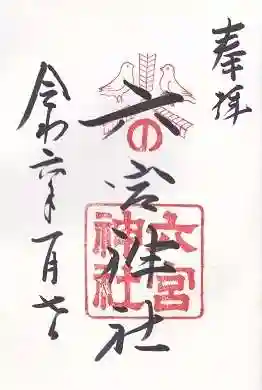 奉拝
六の宮神社
六宮
神社
令和六年一月七日